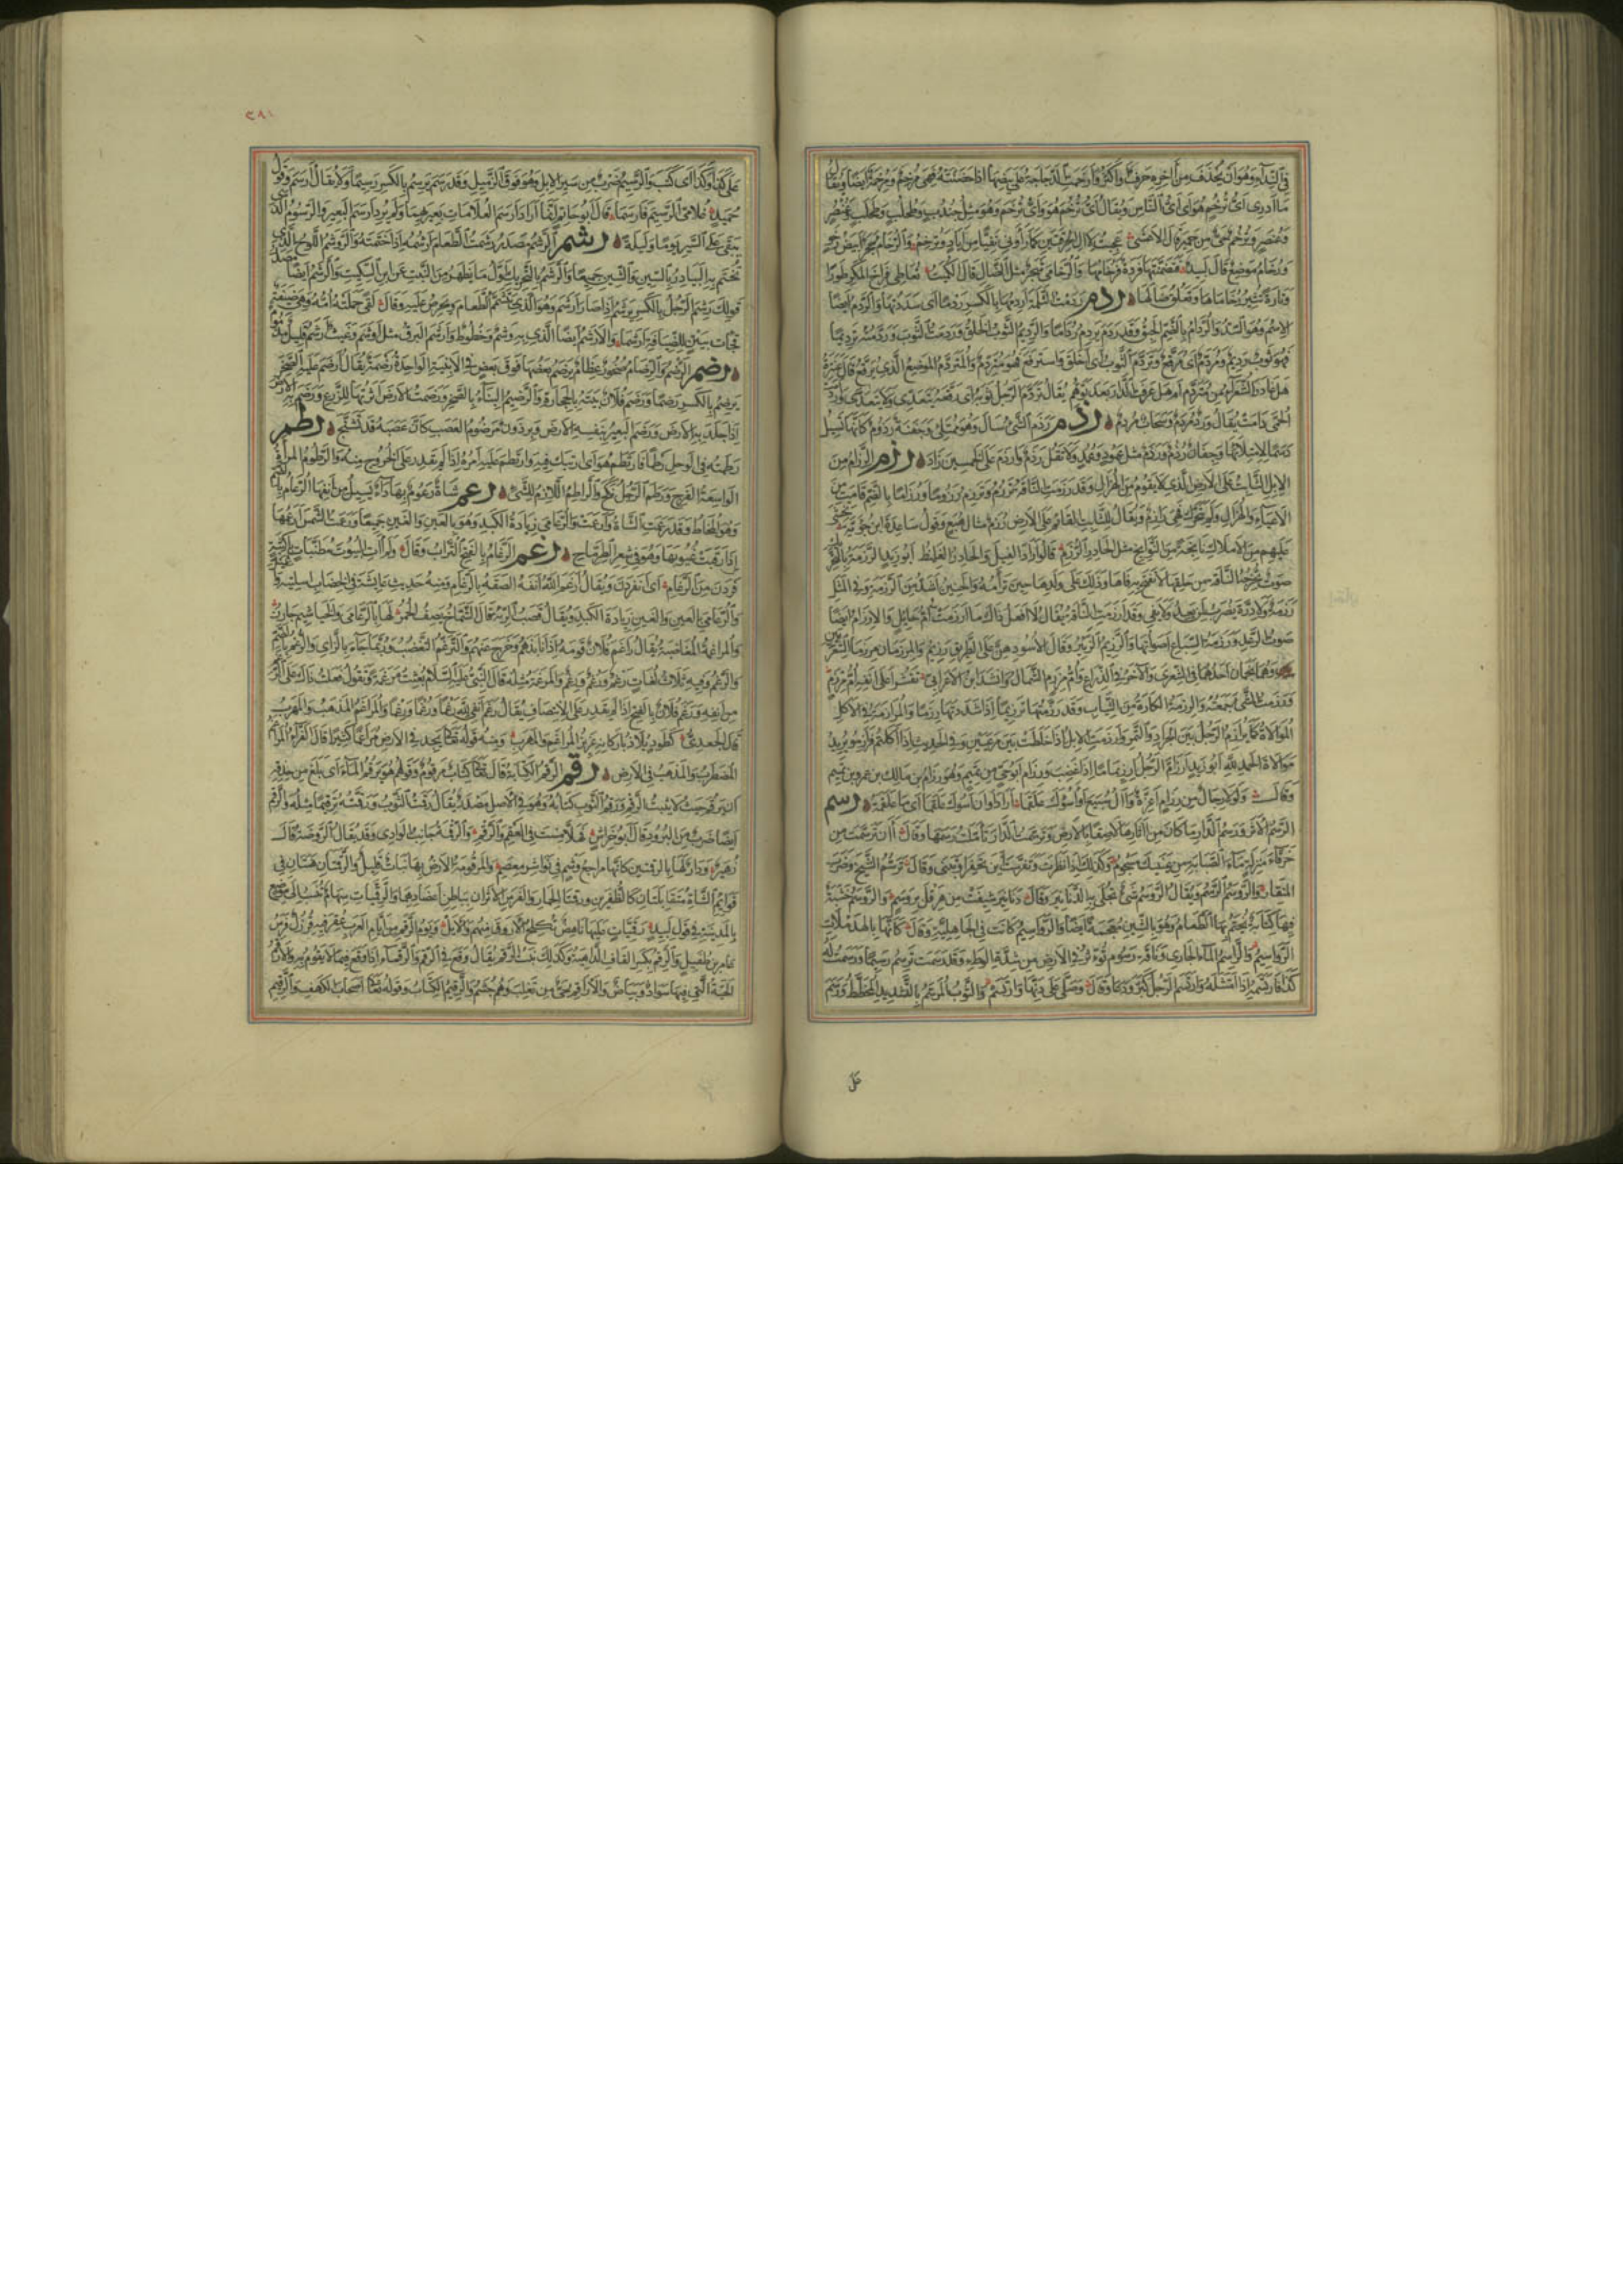 في النداء وهو أن يحذف من آخره حرف أو أكثر وأرخمت الدجاجة على بيضها إذا حضنته فهي مرخم ومرخمة أيضا ويقال
ما أدري أي ترخم هو أي أي الناس هو ويقال أي ترخم هو وأي ترخم وهو مثل جندب وجندب وطحلب وطحلب وعنصر
وعنصر وترخم حي من حمير قال الأعشى عجبت لآل الحرقتين كأنما رأوني نفيا من إياد وترخم والرخام حجر أبيض رخو
ورخام موضع قال لبيد فتضمنتها فردة فرخامها والرخامى شجر مثل الضال قال الكميت تعاطى فراخ المكر طورا
وتارة تثير رخاماها وتعلق ضالها ردم ردمت الثلمة أردمها بالكسر ردما أي سددتها والردم أيضا
الاسم وهو السد والردام بالضم الحبق وقد ردم يردم رداما والرديم الثوب الخلق وردمت الثوب وردمته ترديما
فهو ثوب رديم ومردم أي مرقع وتردم الثوب أي أخلق واسترقع فهو متردم والمتردم الموضع الذي يرقع قال عنترة
هل غادر الشعراء من متردم أم هل عرفت الدار بعد توهم يقال تردم الرجل ثوبه أي رقعه يتعدى ولا يتعدى وأردمت
الحمى دامت يقال ورد مردم وسحاب مردم رذم رذم الشيء سال وهو ممتلئ وجفنة رذوم كأنها تسيل
دسما لامتلائها وجفان رذم ورذم مثل عمود وعمد ولا تقل رذم وأرذم على الخمسين زاد رزم الرزام من
الإبل الثابت على الأرض الذي لا يقوم من الهزال وقد رزمت الناقة ترزم وترزم رزوما ورزاما بالضم قامت من
الإعياء والهزال ولم تتحرك فهي رازم ويقال للثابت القائم على الأرض رزم مثال هبع وقول ساعدة ابن جؤية يخشى
عليهم من الأملاك نابخة من النوابخ مثل الخادر الرزم قالوا أراد الفيل والخادر الغليظ أبو زيد الرزمة بالتحريك
صوت تخرجه الناقة من حلقها لا تفتح به فاها وذلك على ولدها حين ترأمه والحنين أشد من الرزمة وفي المثل
رزمة ولا درة يضرب لمن يعد ولا يفي وقد أرزمت الناقة يقال لا أفعل ذاك ما أرزمت أم حائل والإرزام أيضا
صوت الرعد ورزمة السباع أصواتها والرزيم الزئير وقال لأسودهن على الطريق رزيم والمرزمان مرزما الشعريين
وهما نجمان أحدهما في الشعرى والآخر في الذراع وأم مرزم الشمال وأنشد ابن الأعرابي تقشر أعلى أنفه أم مرزم
ورزمت الشيء جمعته والرزمة الكارة من الثياب وقد رزمتها ترزيما إذا شددتها رزما والمرازمة في الأكل
الموالاة كما يرازم الرجل بين الجراد والتمر ورازمت الإبل إذا خلطت بين مرعيين وفي الحديث إذا أكلتم فرازموا يريد
موالاة الحمد لله أبو زيد ارزأم الرجل ارزيماما إذا غضب ورزام أبو حي من تميم وهو رزام بن مالك بن عمرو بن تميم
وقال ولولا رجال من رزام أعزة وآل سبيع أو أسوءك علقما أراد أو أن أسوءك علقما أي يا علقمة رسم
الرسم الأثر ورسم الدار ما كان من آثارها لاصقا بالأرض وترسمت الدار تأملت رسمها وقال أأن ترسمت من
خرقاء منزلة ماء الصبابة من عينيك مسجوم وكذلك إذا نظرت وتفرست أين تحفر أو تبني وقال ترسم الشيخ وضرب
المنقار والروسم الرسم ويقال الروسم شيء تجلى به الدنانير وقال دنانير شيفت من هرقل بروسم والروسم خشبة
فيها كتابة يختم بها الطعام وهو بالشين معجمة أيضا والرواسيم كانت في الجاهلية وقال كأنها بالهدملات
الرواسيم والراسم الماء الجاري وناقة رسوم تؤثر في الأرض من شدة الوطء وقد رسمت ترسم رسيما ورسمت له
كذا فارتسمه إذا امتثله وارتسم الرجل كبر ودعا وقال وصلى على دنها وارتسم والثوب المرسم بالتشديد المخطط ورسم
على
٢٨١
على كذا وكذا أي كتب والرسيم ضرب من سير الإبل وهو فوق الذميل وقد رسم يرسم بالكسر رسيما ولا يقال أرسم وقول
حميد غلامي الرسيم فأرسما قال أبو حاتم إنما أراد أرسم الغلامان بعيرهما ولم يرد أرسم البعير والرسوم الذي
يبقى على السير يوما وليلة رشم الرشم مصدر رشمت الطعام أرشمه إذا ختمته والروشم اللوح الذي
تختم به البيادر بالسين والشين جميعا والرشم بالتحريك أول ما يظهر من النبت عن ابن السكيت والرشم أيضا مصدر
قولك رشم الرجل بالكسر يرشم إذا صار أرشم وهو الذي يتشمم الطعام ويحرص عليه وقال لقى حملته أمه وهي ضيفة
فجاءت بيتن للضيافة أرشما والأرشم أيضا الذي به وشم وخطوط وأرشم البرق مثل أوشم وغيث أرشم قليل مذموم
رضم الرضم والرضام صخور عظام يرضم بعضها فوق بعض في الأبنية الواحدة رضمة يقال رضم عليه الصخر
يرضم بالكسر رضما ورضم فلان بيته بالحجارة والرضيم البناء بالصخر ورضمت الأرض أثرتها للزرع ورضم به الأرض
إذا جلد به الأرض ورضم البعير بنفسه الأرض وبرذون مرضوم العصب كأن عصبه قد تشنج رطم
رطمته في الوحل رطما فارتطم هو أي ارتبك فيه وارتطم عليه أمره إذا لم يقدر على الخروج منه والرطوم المرأة
الواسعة الفرج ورطم الرجل نكح والراطم اللازم للشيء رعم شاة رعوم بها داء يسيل من أنفها الرعام بالضم
وهو المخاط وقد رعمت الشاة وأرعمت والرعامى زيادة الكبد وهو بالعين والغين جميعا ورعمت الشمس أرعمها
إذا رقبت غيبوبتها وهو في شعر الطرماح رغم الرغام بالفتح التراب وقال ولم آت البيوت مطنبات
فردن من الرغام أي انفردت ويقال أرغم الله أنفه ألصقه بالرغام ومنه حديث عائشة في الخضاب اسلتيه وأرغميه
والرغامى بالعين والغين زيادة الكبد ويقال قصب الرئة قال الشماخ يصف الحمر لها بالرغامى والخياشيم جارز
والمراغمة المغاضبة يقال راغم فلان قومه إذا نابذهم وخرج عنهم والترغم التغضب وربما جاء بالزاي والرغم بالضم
والرغم وفيه ثلاث لغات رغم ورغم ورغم والمرغمة مثله قال النبي عليه السلام بعثت مرغمة وتقول فعلت ذاك على الرغم
من أنفه ورغم فلان بالفتح إذا لم يقدر على الانتصاف يقال رغم أنفي لله رغما ورغما ورغما والمراغم المذهب والمهرب
قال الجعدي كطود يلاذ بأركانه عزيز المراغم والمهرب ومنه قوله تعالى يجد في الأرض مراغما كثيرا قال الفراء المراغم
المضطرب والمذهب في الأرض رقم الرقم الكتابة قال تعالى كتاب مرقوم وقولهم هو يرقم الماء أي بلغ من حذقه
أن يرقم حيث لا يثبت الرقم ورقم الثوب كتابه وهو في الأصل مصدر يقال رقمت الثوب ورقمته ترقيما مثله والرقم
أيضا ضرب من البرود قال أبو خراش لها مست في العقم والرقم والرقمة جانب الوادي وقد يقال للروضة قال
زهير ودار لها بالرقمتين كأنها مراجع وشم في نواشر معصم والمرقومة الأرض بها نبات قليل والرقمتان هنتان في
قوائم الشاة متقابلتان كالظفرين ورقمتا الحمار والفرس الأثران بباطن أعضادهما والرقميات سهام تنسب إلى موضع
بالمدينة في قول لبيد رقميات عليها ناهض تكلح الأروق منهم والأيل ويوم الرقم من أيام العرب عقر فيه قرزل فرس
عامر بن طفيل والرقم بكسر القاف الداهية وكذلك بنت الرقم يقال وقع في الرقم والرقماء إذا وقع فيما لا يقوم به والأرقم
الحية التي فيها سواد وبياض والأراقم حي من تغلب وهم جشم والرقيم الكتاب وقوله تعالى أصحاب الكهف والرقيم